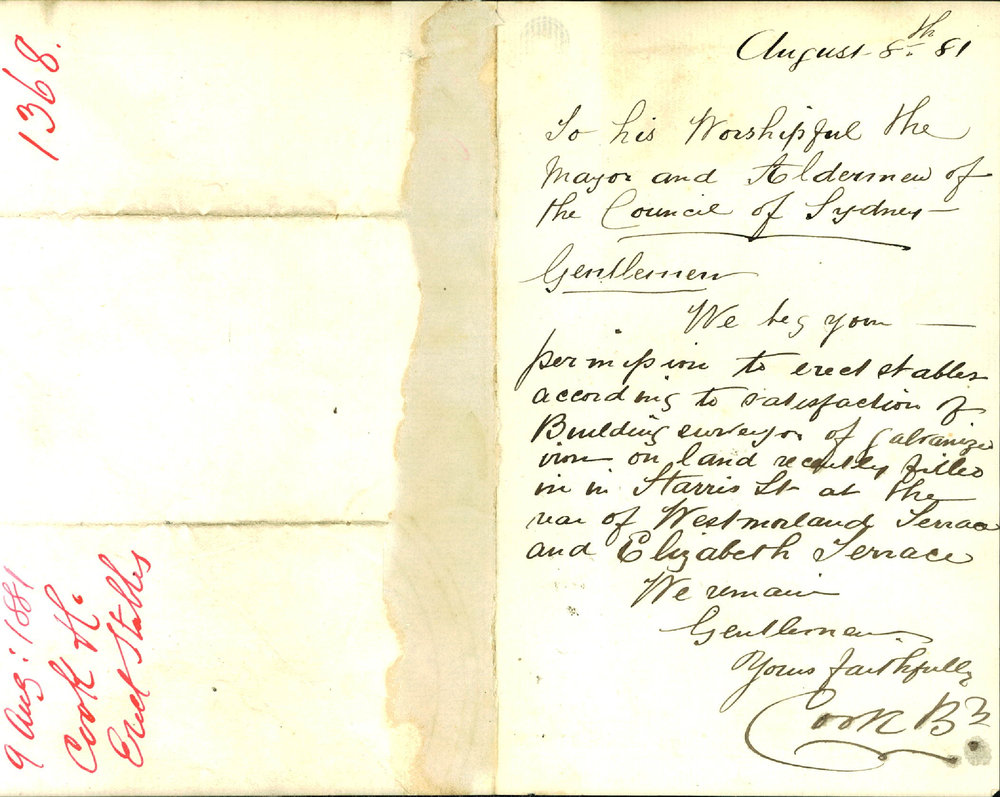 1368.
9 Aug: 1881
Cook H.
Erect Stables
August 8th 81
To his Worshipful the
Mayor and Aldermen of
the Council of Sydney—
Gentlemen
We beg your —
permission to erect stables
according to satisfaction of
Building surveyor of galvanized
iron on land recently filled
in in Harris St at the
rear of Westmorland Terrace
and Elizabeth Terrace
We remain
Gentlemen
Yours faithfully
Cook Bs